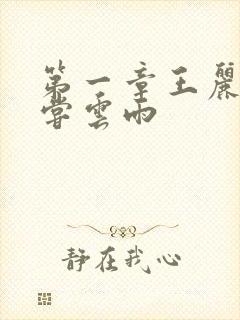 第一章王麗
嘗雲雨
静在我心